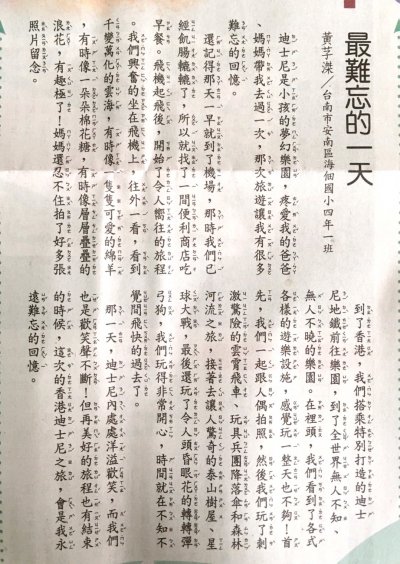 最難忘的一天
黃芓濴／台南市安南區海佃國小四年一班
迪士尼是小孩的夢幻樂園，疼愛我的爸爸
、媽媽帶我去過一次，那次旅遊讓我有很多
難忘的回憶。
還記得那天一早就到了機場，那時我們已
經飢腸轆轆了，所以就找了一間便利商店吃
早餐。飛機起飛後，開始了令人嚮往的旅程
。我們興奮的坐在飛機上，往外一看，看到
千變萬化的雲海，有時像一隻隻可愛的綿羊
，有時像一朵朵棉花糖，有時像層層疊疊的
浪花，有趣極了！媽媽還忍不住拍了好多張
照片留念。
到了香港，我們搭乘特別打造的迪士
尼地鐵前往樂園，到了全世界無人不知、
無人不曉的樂園。在裡頭，我們看到了各式
各樣的遊樂設施，感覺玩一整天也不夠！首
先，我們一起跟人偶拍照，然後我們玩了刺
激驚險的雲霄飛車、玩具兵團降落傘和森林
河流之旅，接著去讓人驚奇的泰山樹屋、星
球大戰，最後還玩了令人頭昏眼花的轉轉彈
弓狗，我們玩得非常開心，時間就在不知不
覺間飛快的過去了。
那一天，迪士尼內處處洋溢歡笑，而我們
也是歡笑聲不斷！但再美好的旅程也有結束
的時候，這次的香港迪士尼之旅，會是我永
遠難忘的回憶。